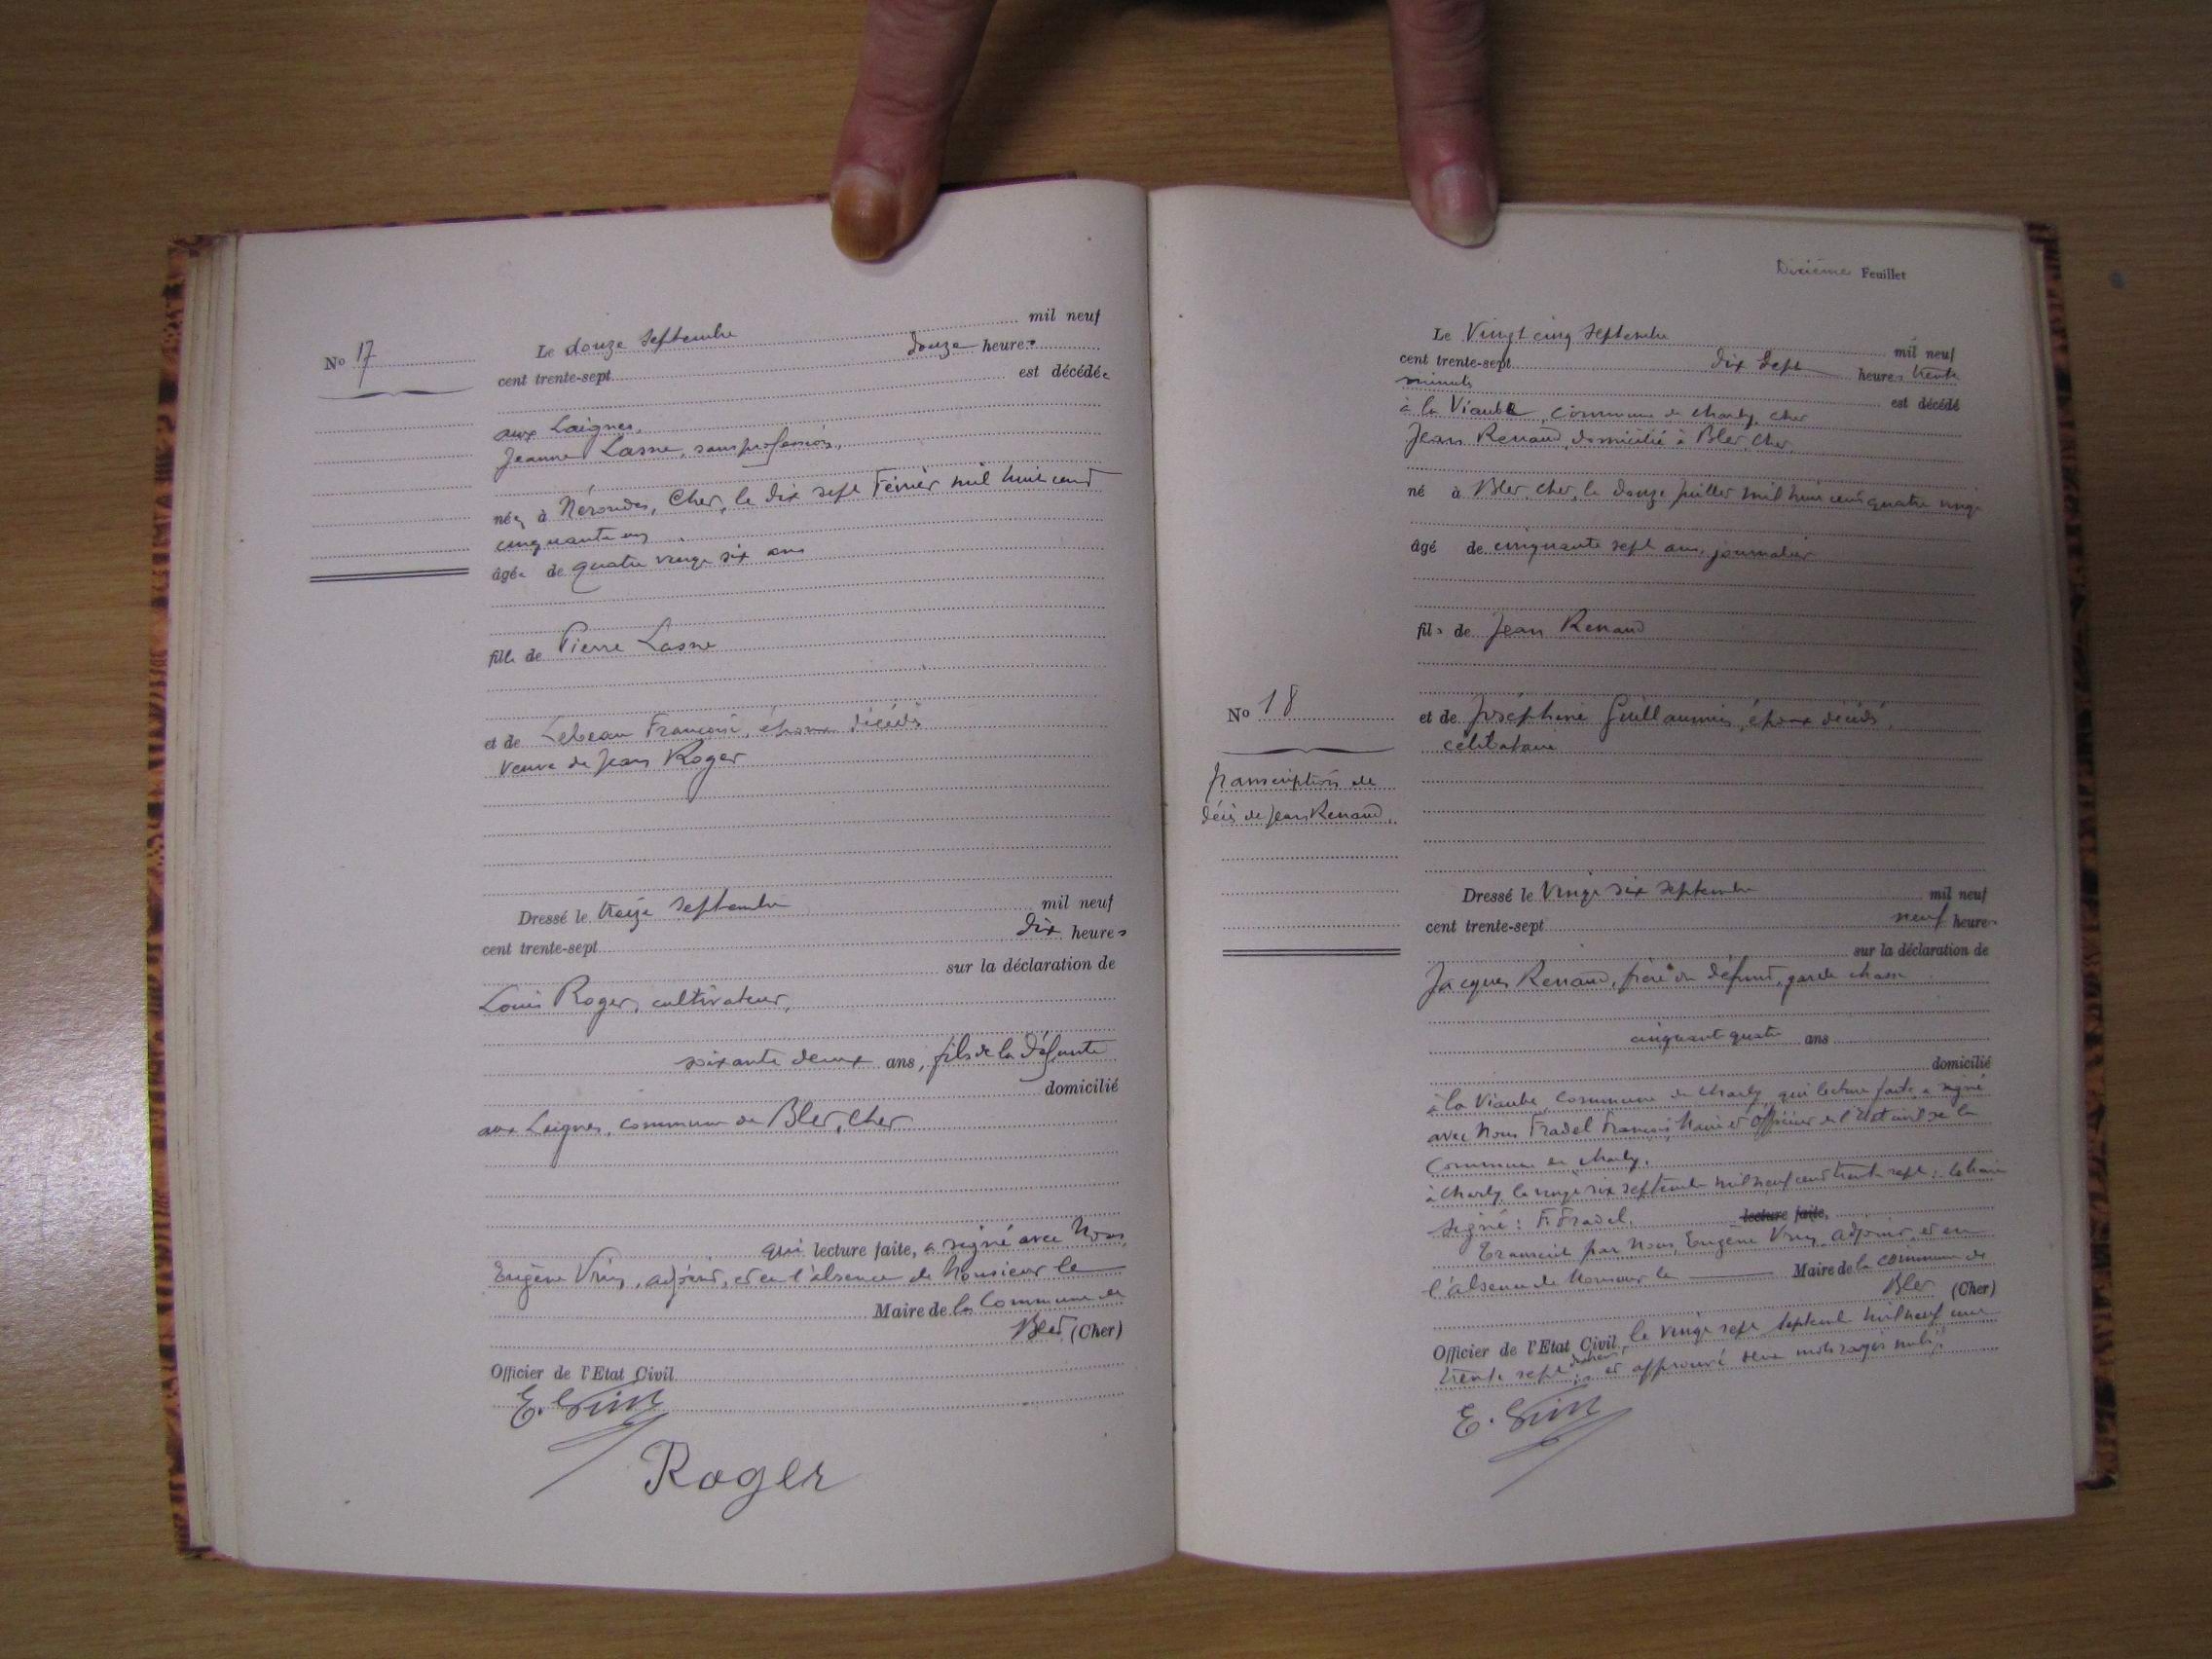 No 17
Le douze Septembre mil neuf
cent trente-sept douze heures
est décédée
aux Laignes,
Jeanne Lasne, sans profession,
née à Nérondes, Cher, le dix sept Février mil huit cent
cinquante un
âgée de quatre vingt six ans
fille de Pierre Lasne
et de Lebeau Françoise, époux décédés
veuve de Jean Roger
Dressé le treize Septembre mil neuf
cent trente-sept dix heures
sur la déclaration de
Louis Roger, cultivateur,
soixante deux ans, fils de la défunte
domicilié
aux Laignes, commune de Blet, Cher
qui lecture faite, a signé avec Nous,
Eugène Vrin, adjoint, et en l'absence de Monsieur le
Maire de la Commune de
Blet (Cher)
Officier de l'Etat Civil
Roger
Dixième Feuillet
Le Vingt cinq Septembre mil neuf
cent trente-sept dix sept heures trente
minutes est décédé
à la Viaube, commune de Charly, Cher
Jean Renaud, domicilié à Blet, Cher,
né à Blet Cher, le douze juillet mil huit cent quatre vingt
âgé de cinquante sept ans, journalier
fils de Jean Renaud
No 18
et de Joséphine Guillaumin, époux décédés,
célibataire
transcription de
décès de Jean Renaud.
Dressé le Vingt six Septembre mil neuf
cent trente-sept neuf heures
sur la déclaration de
Jacques Renaud, frère du défunt, garde chasse
cinquante quatre ans
domicilié
à la Viaube, commune de Charly, qui lecture faite, a signé
avec Nous Fradel François, Maire et Officier de l'Etat civil de la
Commune de Charly.
à Charly le vingt six septembre mil neuf cent trente sept; le Maire
signé: F. Fradel. lecture faite,
Transcrit par Nous, Eugène Vrin, adjoint, et en
l'absence de Monsieur le Maire de la commune de
Blet (Cher)
Officier de l'Etat Civil, le vingt sept Septembre mil neuf cent
trente sept et approuvé deux mots rayés nuls.